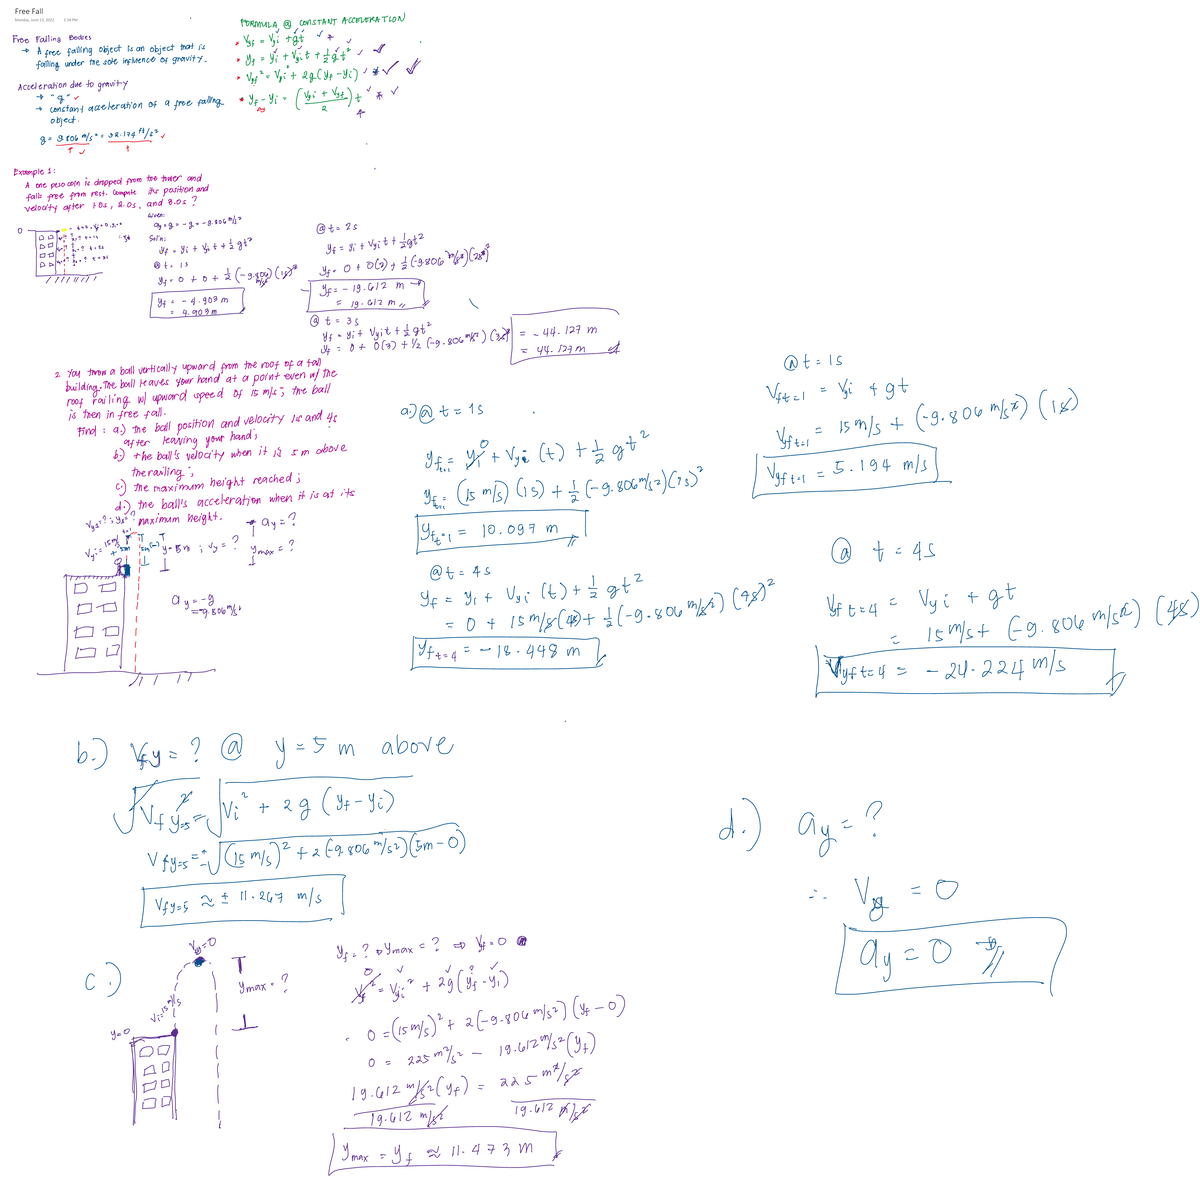 Free Fall
Monday, June 13, 2022
Free Falling Bodies
→ A free falling object is an object that is
falling under the sole influence of gravity.
Acceleration due to gravity
→ "g"
→ constant acceleration of a free falling
object.
g = 9.806 m/s² = 32.174 ft/s²
FORMULA @ CONSTANT ACCELERATION
* Vyf = Vyi + gt
* yf = yi + Vyi t + 1/2 gt²
* Vyf² = Vyi² + 2g (yf - yi)
* yf - yi = (Vyi + Vyf / 2) t
Example 1:
A one peso coin is dropped from the tower and
falls free from rest. Compute its position and
velocity after 1.0s, 2.0s, and 3.0s ?
Given:
ay = g = -g = -9.806 m/s²
Sol'n:
yf = yi + Vyi t + 1/2 gt²
@ t = 1s
yf = 0 + 0 + 1/2 (-9.806 m/s²) (1s)²
yf = -4.903 m
= 4.903 m
@ t = 2s
yf = yi + Vyi t + 1/2 gt²
yf = 0 + 0(2) + 1/2 (-9.806 m/s²) (2s)²
yf = -19.612 m
= 19.612 m
@ t = 3s
yf = yi + Vyi t + 1/2 gt²
yf = 0 + 0(3) + 1/2 (-9.806 m/s²) (3s)²
= -44.127 m
= 44.127 m
0
2. You throw a ball vertically upward from the roof of a tall
building. The ball leaves your hand at a point even w/ the
roof railing w/ upward speed of 15 m/s; the ball
is then in free fall.
Find : a.) the ball position and velocity 1s and 4s
after leaving your hand;
b) the ball's velocity when it is 5 m above
the railing;
c) the maximum height reached;
d.) the ball's acceleration when it is at its
maximum height.
ay = ?
Vyi = 15 m/s
5m
y = 5m ; vy = ?
ymax = ?
ay = -g
= -9.806 m/s²
a.) @ t = 1s
yf t=1 = yi + Vyi (t) + 1/2 gt²
0
yf t=1 = (15 m/s) (1s) + 1/2 (-9.806 m/s²) (1s)²
yf t=1 = 10.097 m
@ t = 4s
yf = yi + Vyi (t) + 1/2 gt²
= 0 + 15 m/s (4s) + 1/2 (-9.806 m/s²) (4s)²
yf t=4 = -18.448 m
@ t = 1s
Vf t=1 = Vyi + gt
Vyf t=1 = 15 m/s + (-9.806 m/s²) (1s)
Vyf t=1 = 5.194 m/s
@ t = 4s
Vyf t=4 = Vyi + gt
= 15 m/s + (-9.806 m/s²) (4s)
Vyf t=4 = -24.224 m/s
b.) Vfy = ? @ y = 5 m above
√Vf y=5² = √Vi² + 2g (yf - yi)
Vfy=5 = ±√(15 m/s)² + 2 (-9.806 m/s²) (5m - 0)
Vfy=5 ≈ ± 11.267 m/s
c.)
Vy = 0
Vi = 15 m/s
y = 0
ymax = ?
yf = ? → ymax = ? ⇒ Vf = 0
0
Vf² = Vyi² + 2g (yf - yi)
0 = (15 m/s)² + 2 (-9.806 m/s²) (yf - 0)
0 = 225 m²/s² - 19.612 m/s² (yf)
19.612 m/s² (yf) = 225 m²/s²
19.612 m/s² 19.612 m/s²
ymax = yf ≈ 11.473 m
d.) ay = ?
∴ Vy = 0
ay = 0